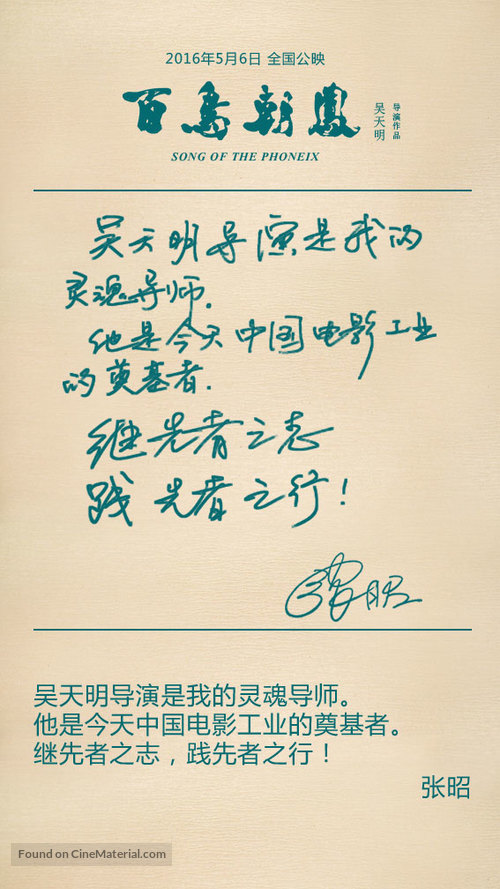 2016年5月6日 全国公映
百鸟朝凤
吴天明
导演作品
SONG OF THE PHONEIX
吴天明导演是我的
灵魂导师.
他是今天中国电影工业
的奠基者.
继先者之志
践先者之行!
张昭
吴天明导演是我的灵魂导师。
他是今天中国电影工业的奠基者。
继先者之志，践先者之行！
张昭
Found on CineMaterial.com